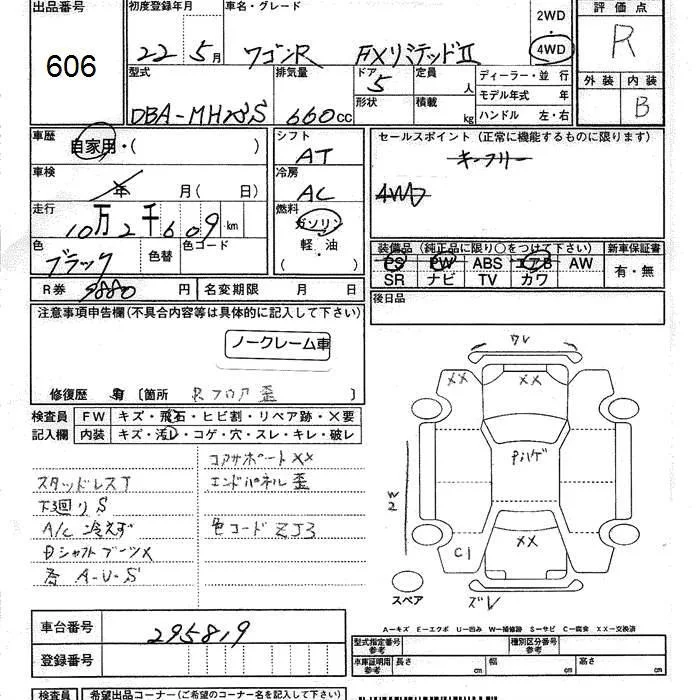 出品番号
606
初度登録年月
22 5月
車名・グレード
ワゴンR FXリミテッドⅡ
2WD
4WD
評価点
R
外装 内装
B
型式
DBA-MH23S
排気量
660cc
ドア 5
形状
定員 人
積載 kg
ディーラー・並行
モデル年式 年
ハンドル 左・右
車歴
自家用・( )
車検
年 月( 日)
走行
10万2千609km
色
ブラック
色替
色コード
シフト
AT
冷房
AC
燃料
ガソリン
軽・油
( )
セールスポイント (正常に機能するものに限ります)
キーフリー
4WD
装備品 (純正品に限り○をつけて下さい) 新車保証書
PS PW ABS エアB AW
SR ナビ TV カワ
有・無
R券 9880 円
名変期限 月 日
後日品
注意事項申告欄(不具合内容等は具体的に記入して下さい)
ノークレーム車
修復歴 有 〔箇所 Rフロア歪 〕
検査員
記入欄
FW キズ・飛石・ヒビ割・リペア跡・X要
内装 キズ・汚レ・コゲ・穴・スレ・キレ・破レ
コアサポートXX
スタッドレスT
エンドパネル歪
下廻りS
A/C 冷えず
色コード ZJ3
DシャフトブーツX
A-U-S
ワレ
XX
XX
Pハゲ
W2
C1
XX
ズレ
スペア
A=キズ E=エクボ U=凹み W=補修跡 S=サビ C=腐食 XX=交換済
車台番号
295819
登録番号
型式指定番号
参考
種別区分番号
参考
車庫証明用
参考
長さ cm
幅 cm
高さ cm
検査員
希望出品コーナー(ご希望のコーナー名を記入して下さい)